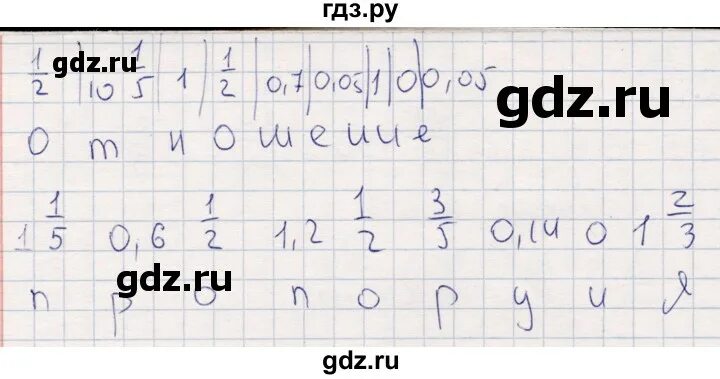 гдз.ру
1/2 | 10 1/5 | 1 | 1/2 | 0,7 | 0,05 | 1 | 0 | 0,05
gdz.ru
gdz.ru
о т н о ш е н и е
1 1/5 0,6 1/2 1,2 1/2 3/5 0,14 0 1 2/3
gdz.ru
п р о п о р ц и я
gdz.ru